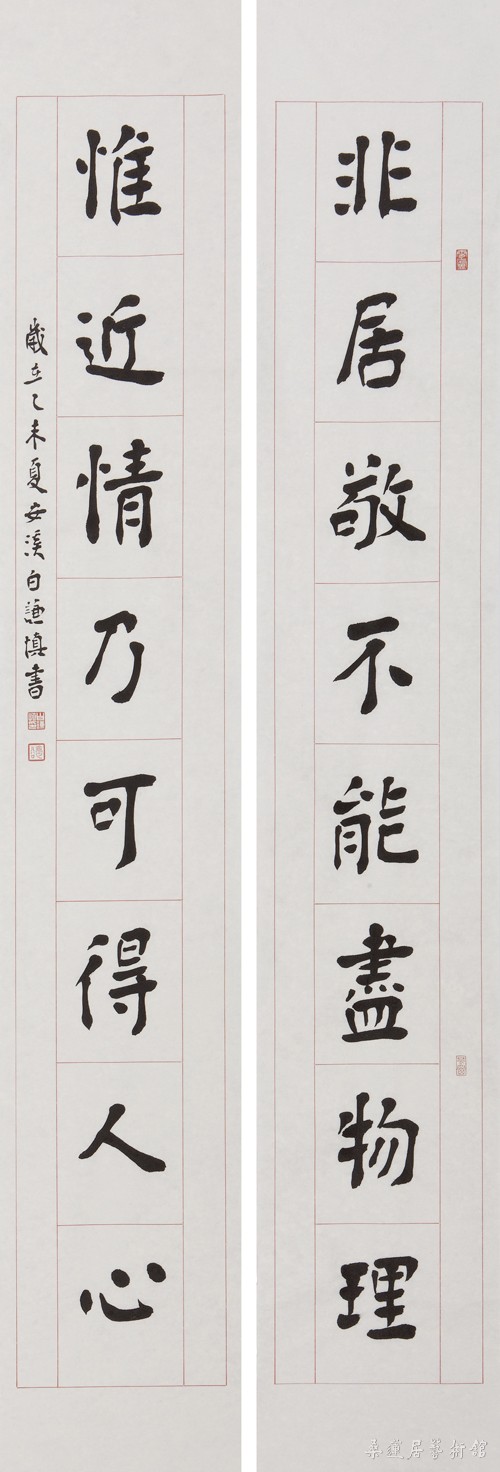 非居敬不能盡物理
惟近情乃可得人心
歲在乙未夏安溪白謙慎書
桑蓮居藝術館